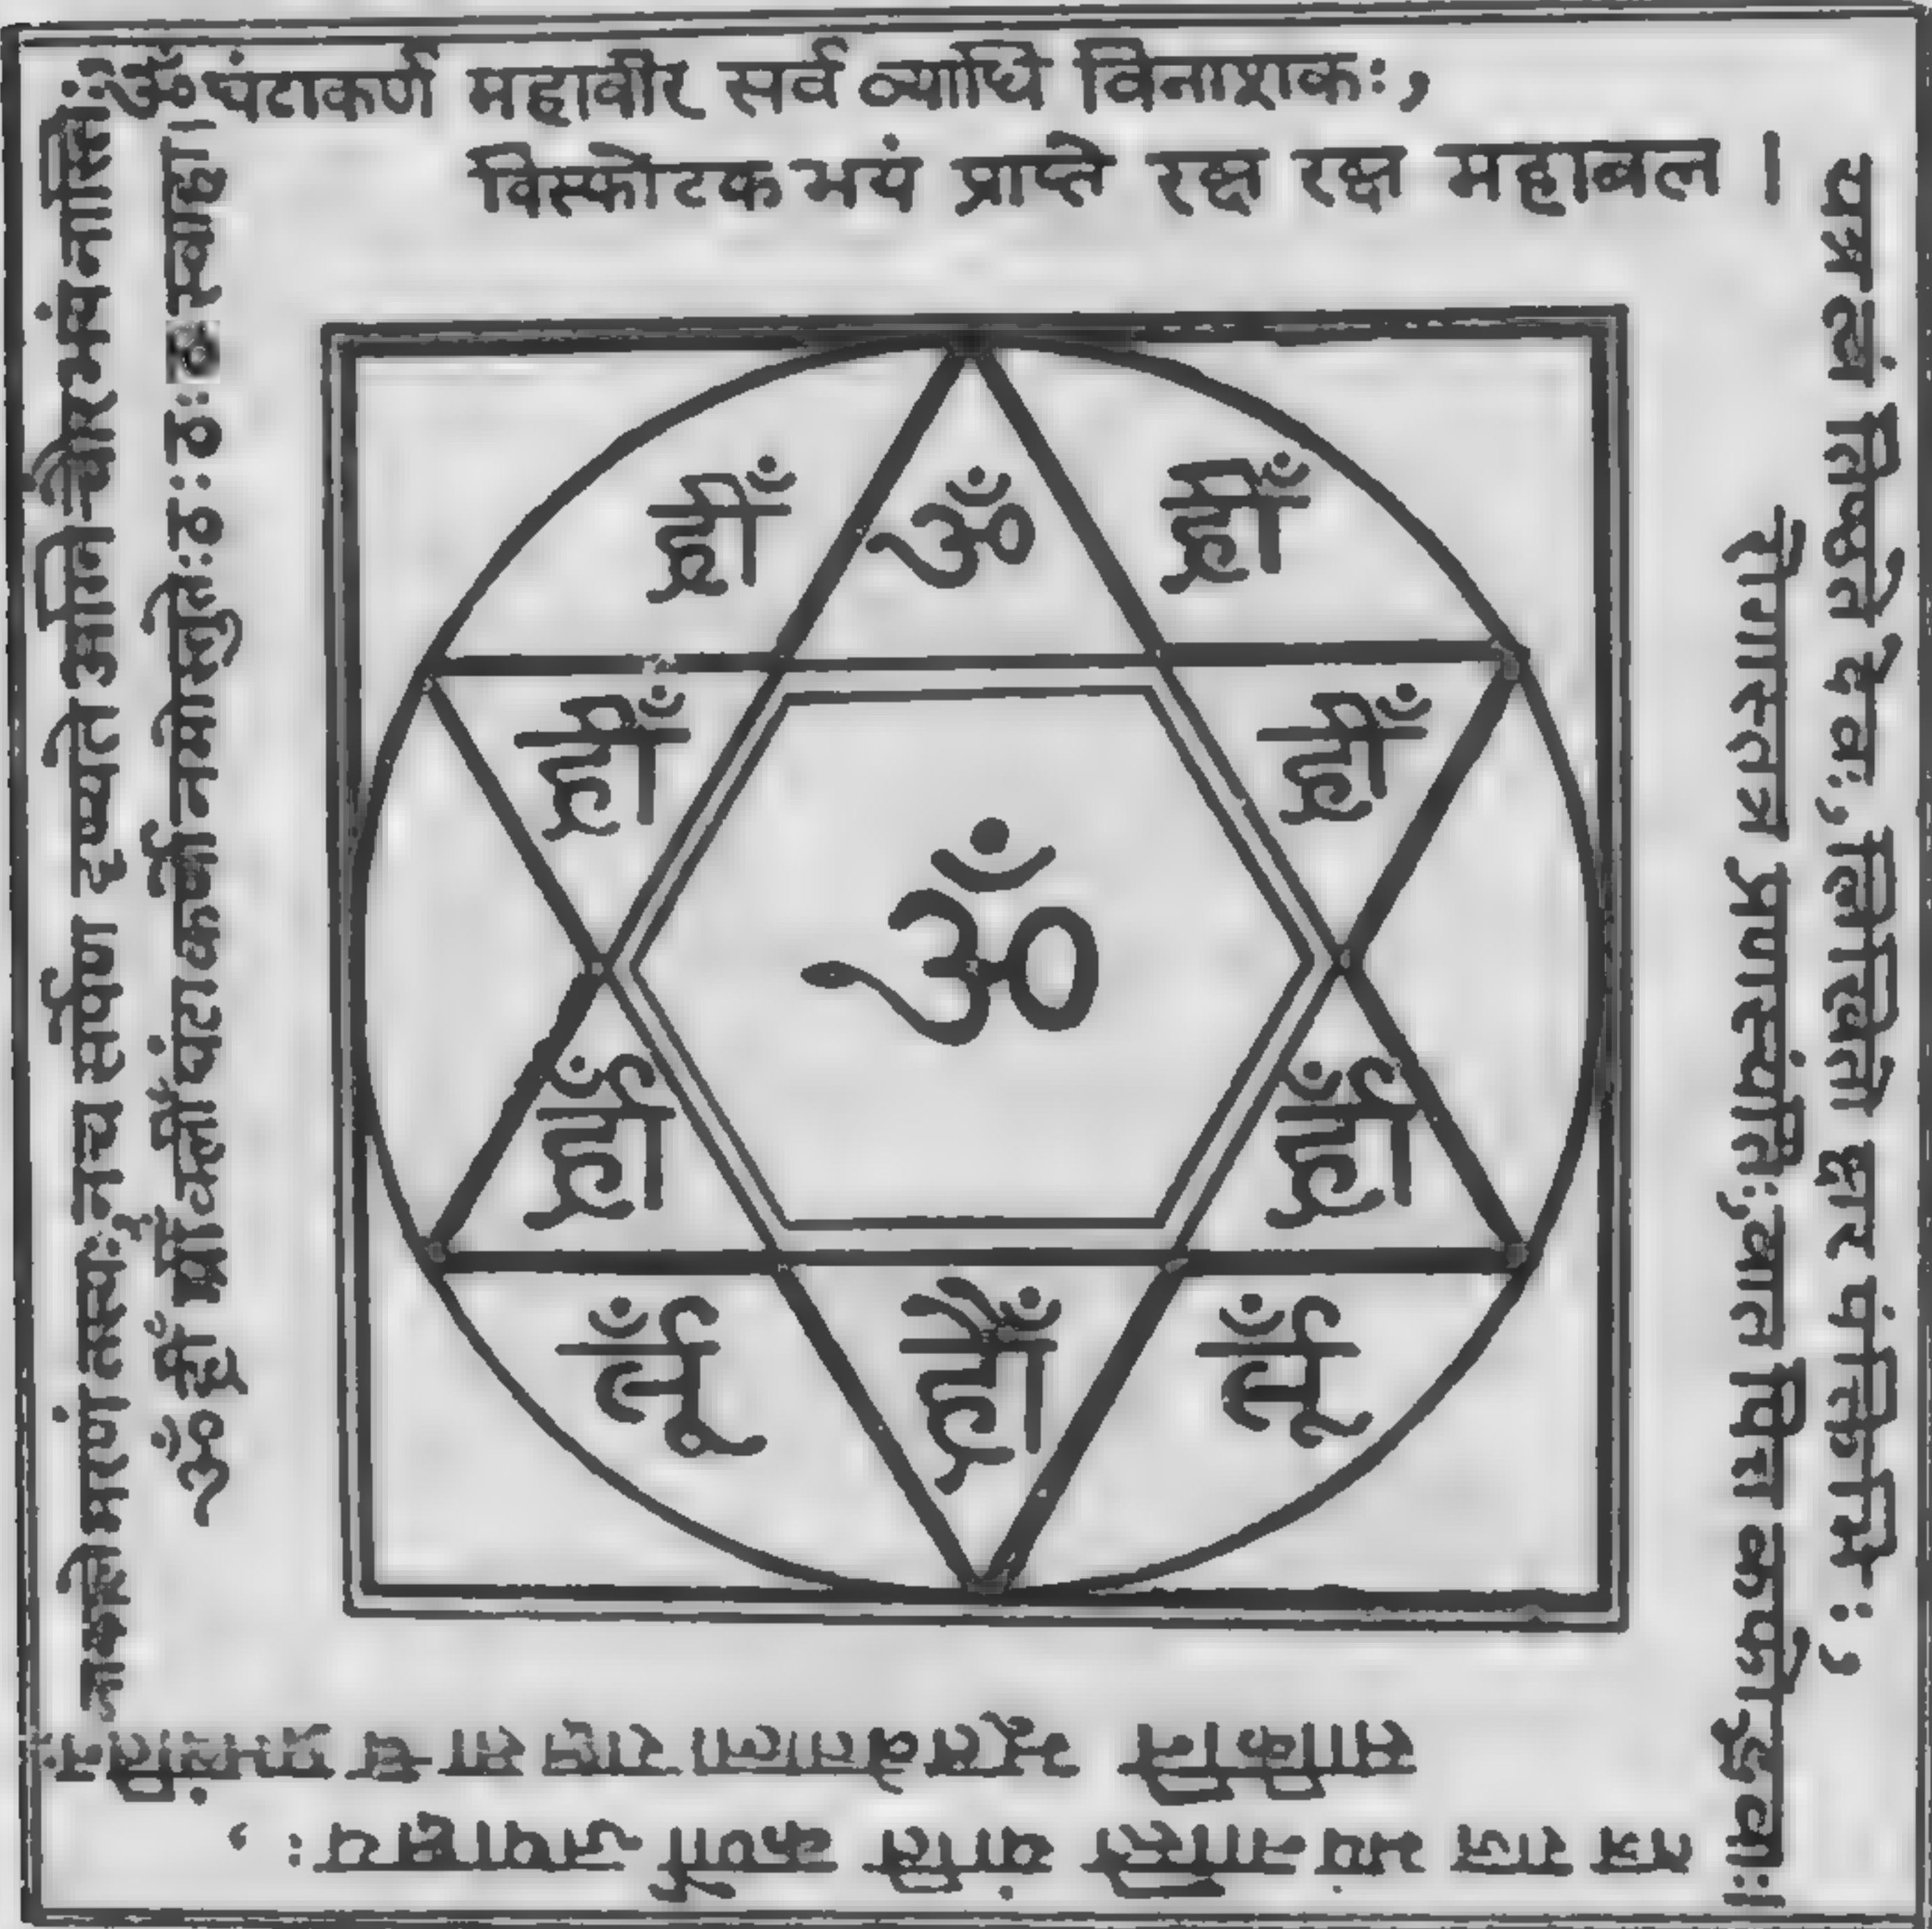 ॐ घंटाकर्ण महावीर सर्व व्याधि विनाशकः,
विस्फोटक भयं प्राप्ते रक्ष रक्ष महाबल ।
यत्र त्वं तिष्ठते देवः, लिखितो क्षर पंक्तिभिः,
रोगास्तत्र प्रणस्यंति; वात पित्त कफोद्भवाः।
तत्र राज भयं नास्ति यांति कर्णे जपाक्षय: ,
साकिनि भूत वेताला राक्ष सा च प्रभवंतिनः
नाकाले मरणं तस्यः नच सर्पेण दृष्यते अग्नि चौर भयं नास्तिः
ॐ ह्रीँ घंटाकर्णो नमोस्तुतेः ठः ठः स्वाहा।
ह्रीँ ॐ ह्रीँ
ह्रीँ ह्रीँ
ॐ